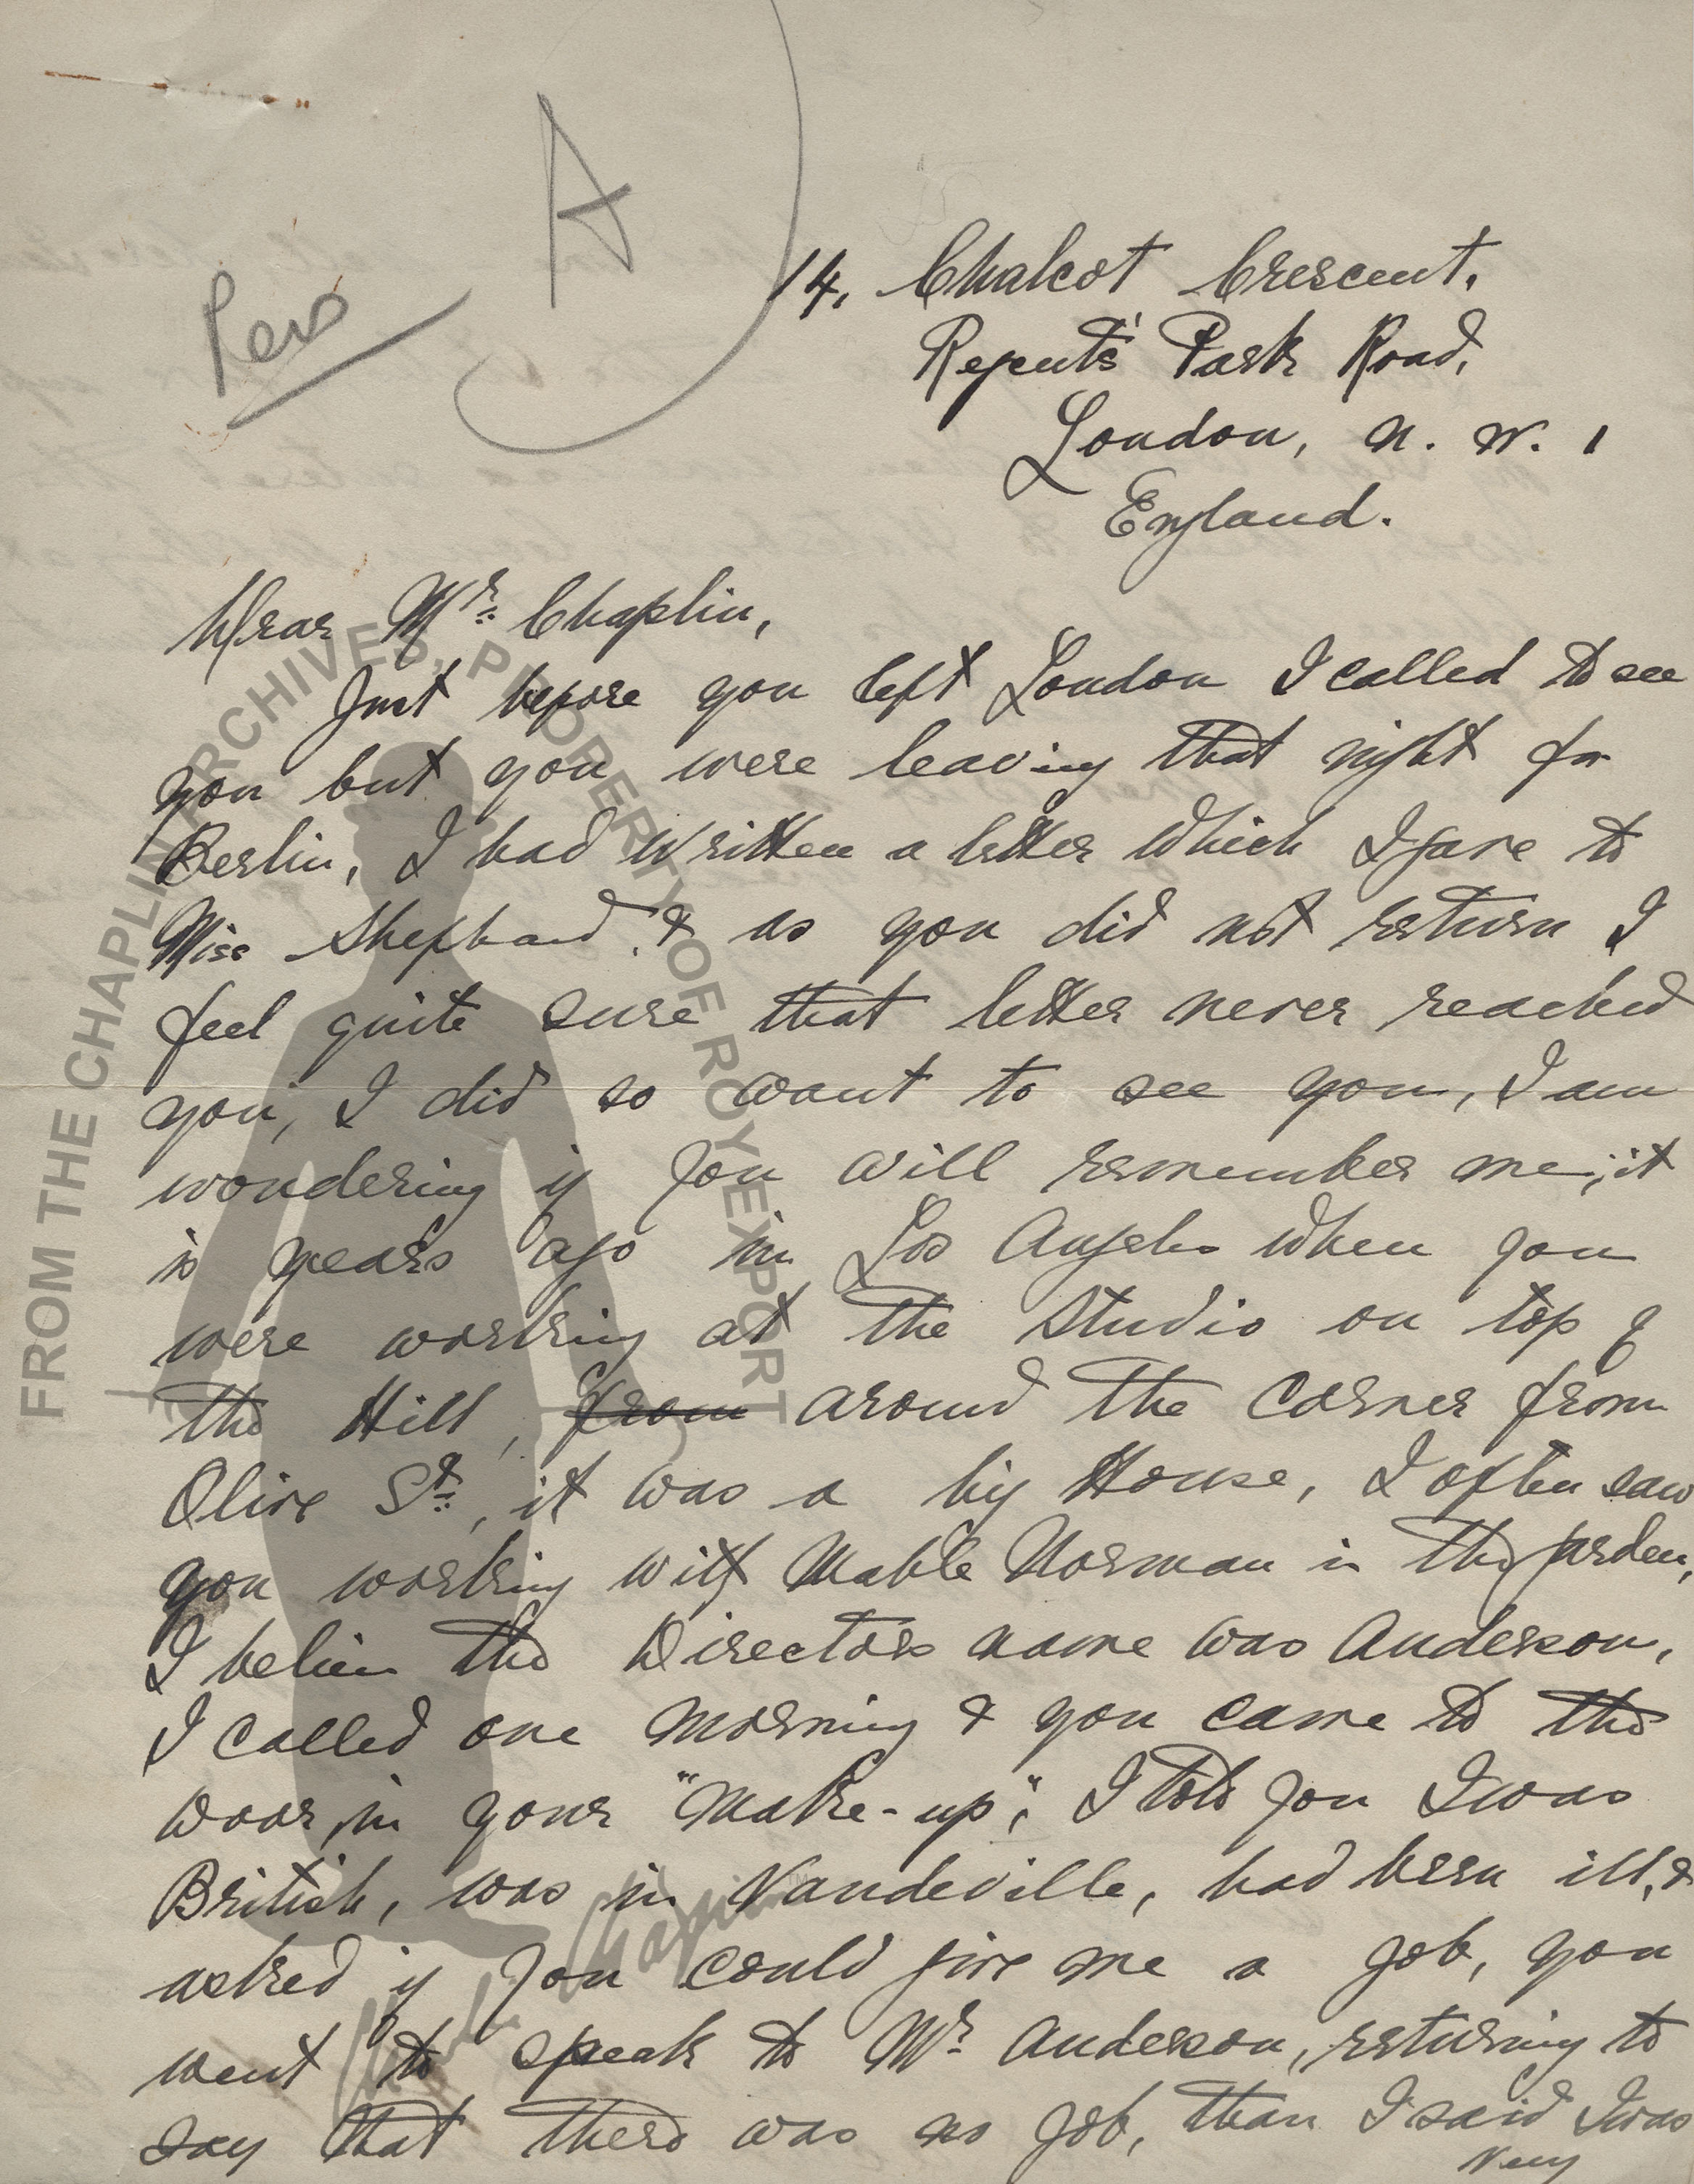 A
Pers
14, Chalcot Crescent,
Regents' Park Road,
London, N. W. 1
England.
Dear Mr. Chaplin,
Just before you left London I called to see
you but you were leaving that night for
Berlin, I had written a letter which I gave to
Miss Shephard & as you did not return I
feel quite sure that letter never reached
you, I did so want to see you, I am
wondering if you will remember me; it
is years ago in Los Angeles when you
were working at the Studio on top of
the Hill, from around the corner from
Olive St., it was a big House, I often saw
you working with Mable Norman in the garden,
I believe the Directors name was Anderson,
I called one morning & you came to the
door, in your "Make-up", I told you I was
British, was in Vaudeville, had been ill, &
asked if you could give me a job, you
went to speak to Mr. Anderson, returning to
say that there was no job, than I said I was
Very
FROM THE CHAPLIN ARCHIVES, PROPERTY OF ROY EXPORT
Charlie Chaplin